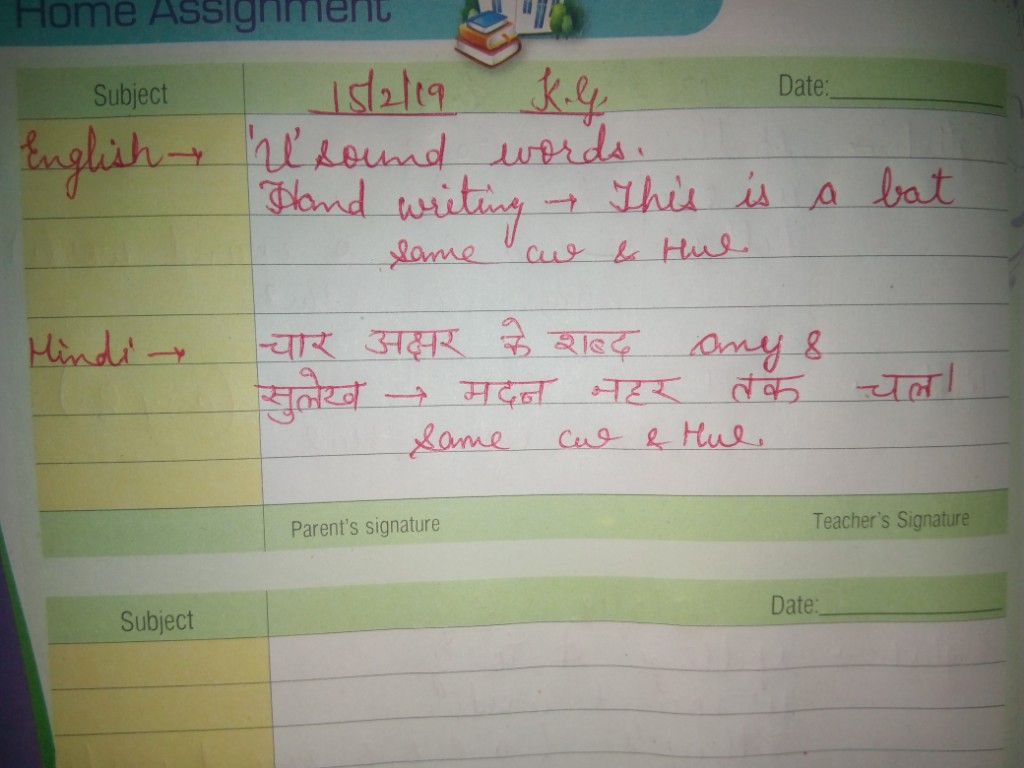 Home Assignment
Subject 15/2/19 K.G. Date:
English → 'U' sound words.
Hand writing → This is a bat
Same cw & Hw.
Hindi → चार अक्षर के शब्द any 8
सुलेख → मदन नहर तक चल।
Same cw & Hw.
Parent's signature Teacher's Signature
Subject Date: